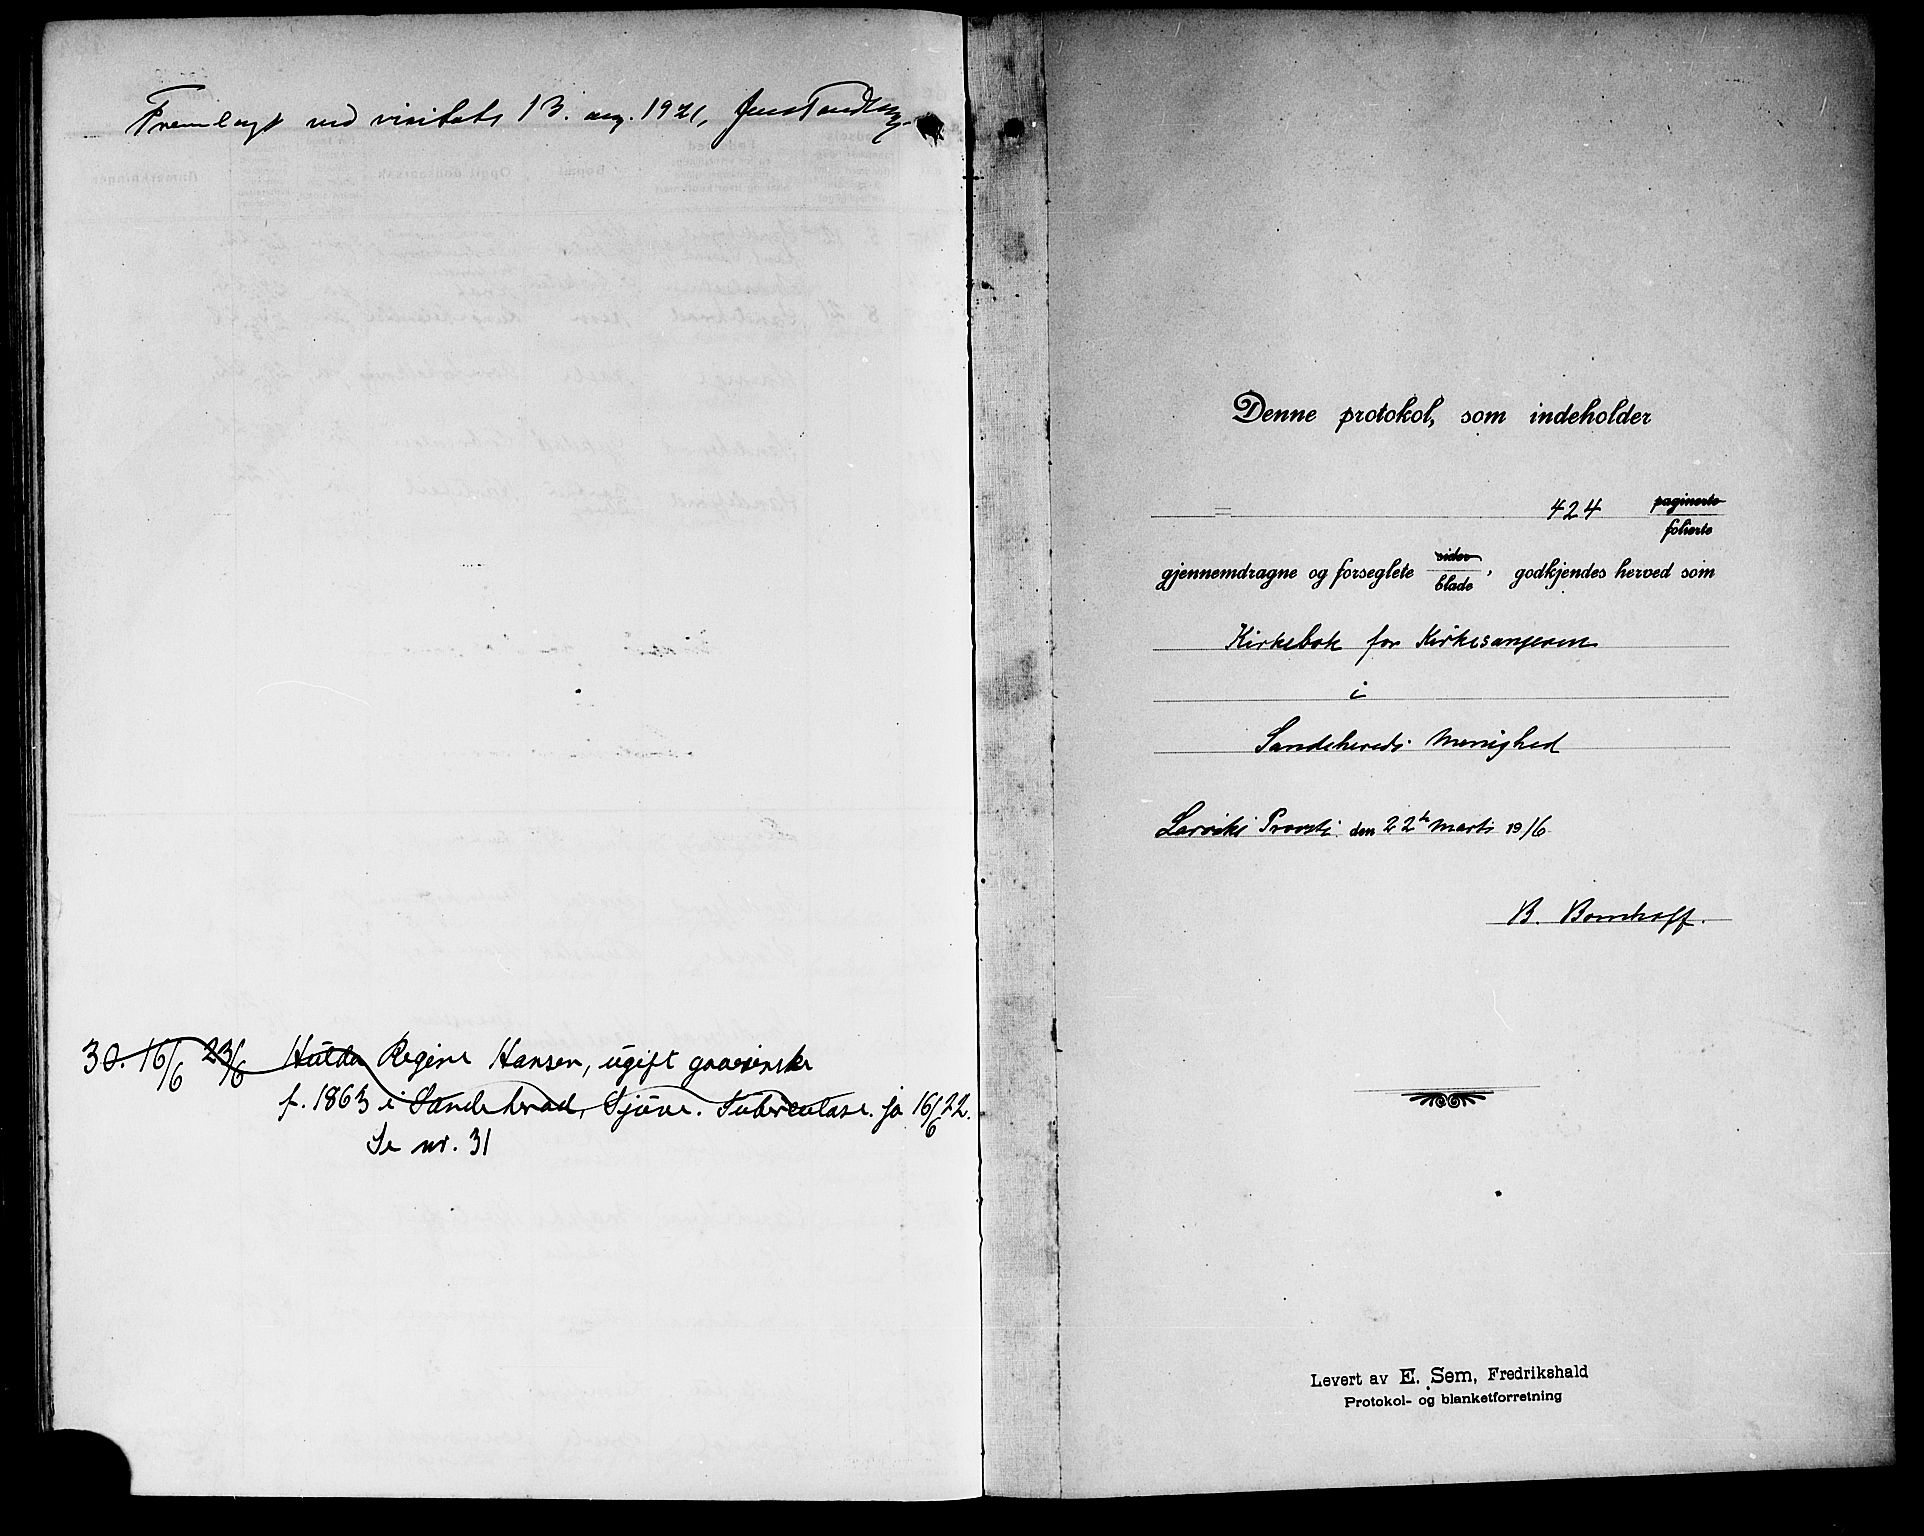 Fremlagt ved visitats 13. aug. 1921, Jens Tandberg
30. 16/6 23/6 Hulda Regine Hansen, ugift gaardenske
f. 1863 i Sandeherad, Sjüve. Tuberculose. ja 16/6 22.
Se nr. 31
Denne protokol, som indeholder
= 424 paginerte
folierte
gjennemdragne og forseglete sider blade, godkjendes herved som
Kirkebok for Kirkesangeren
i
Sandeherads Menighed
Larviks Provsti den 22de Marts 1916
B. Bomhoff.
Levert av E. Sem, Fredrikshald
Protokol- og blanketforretning